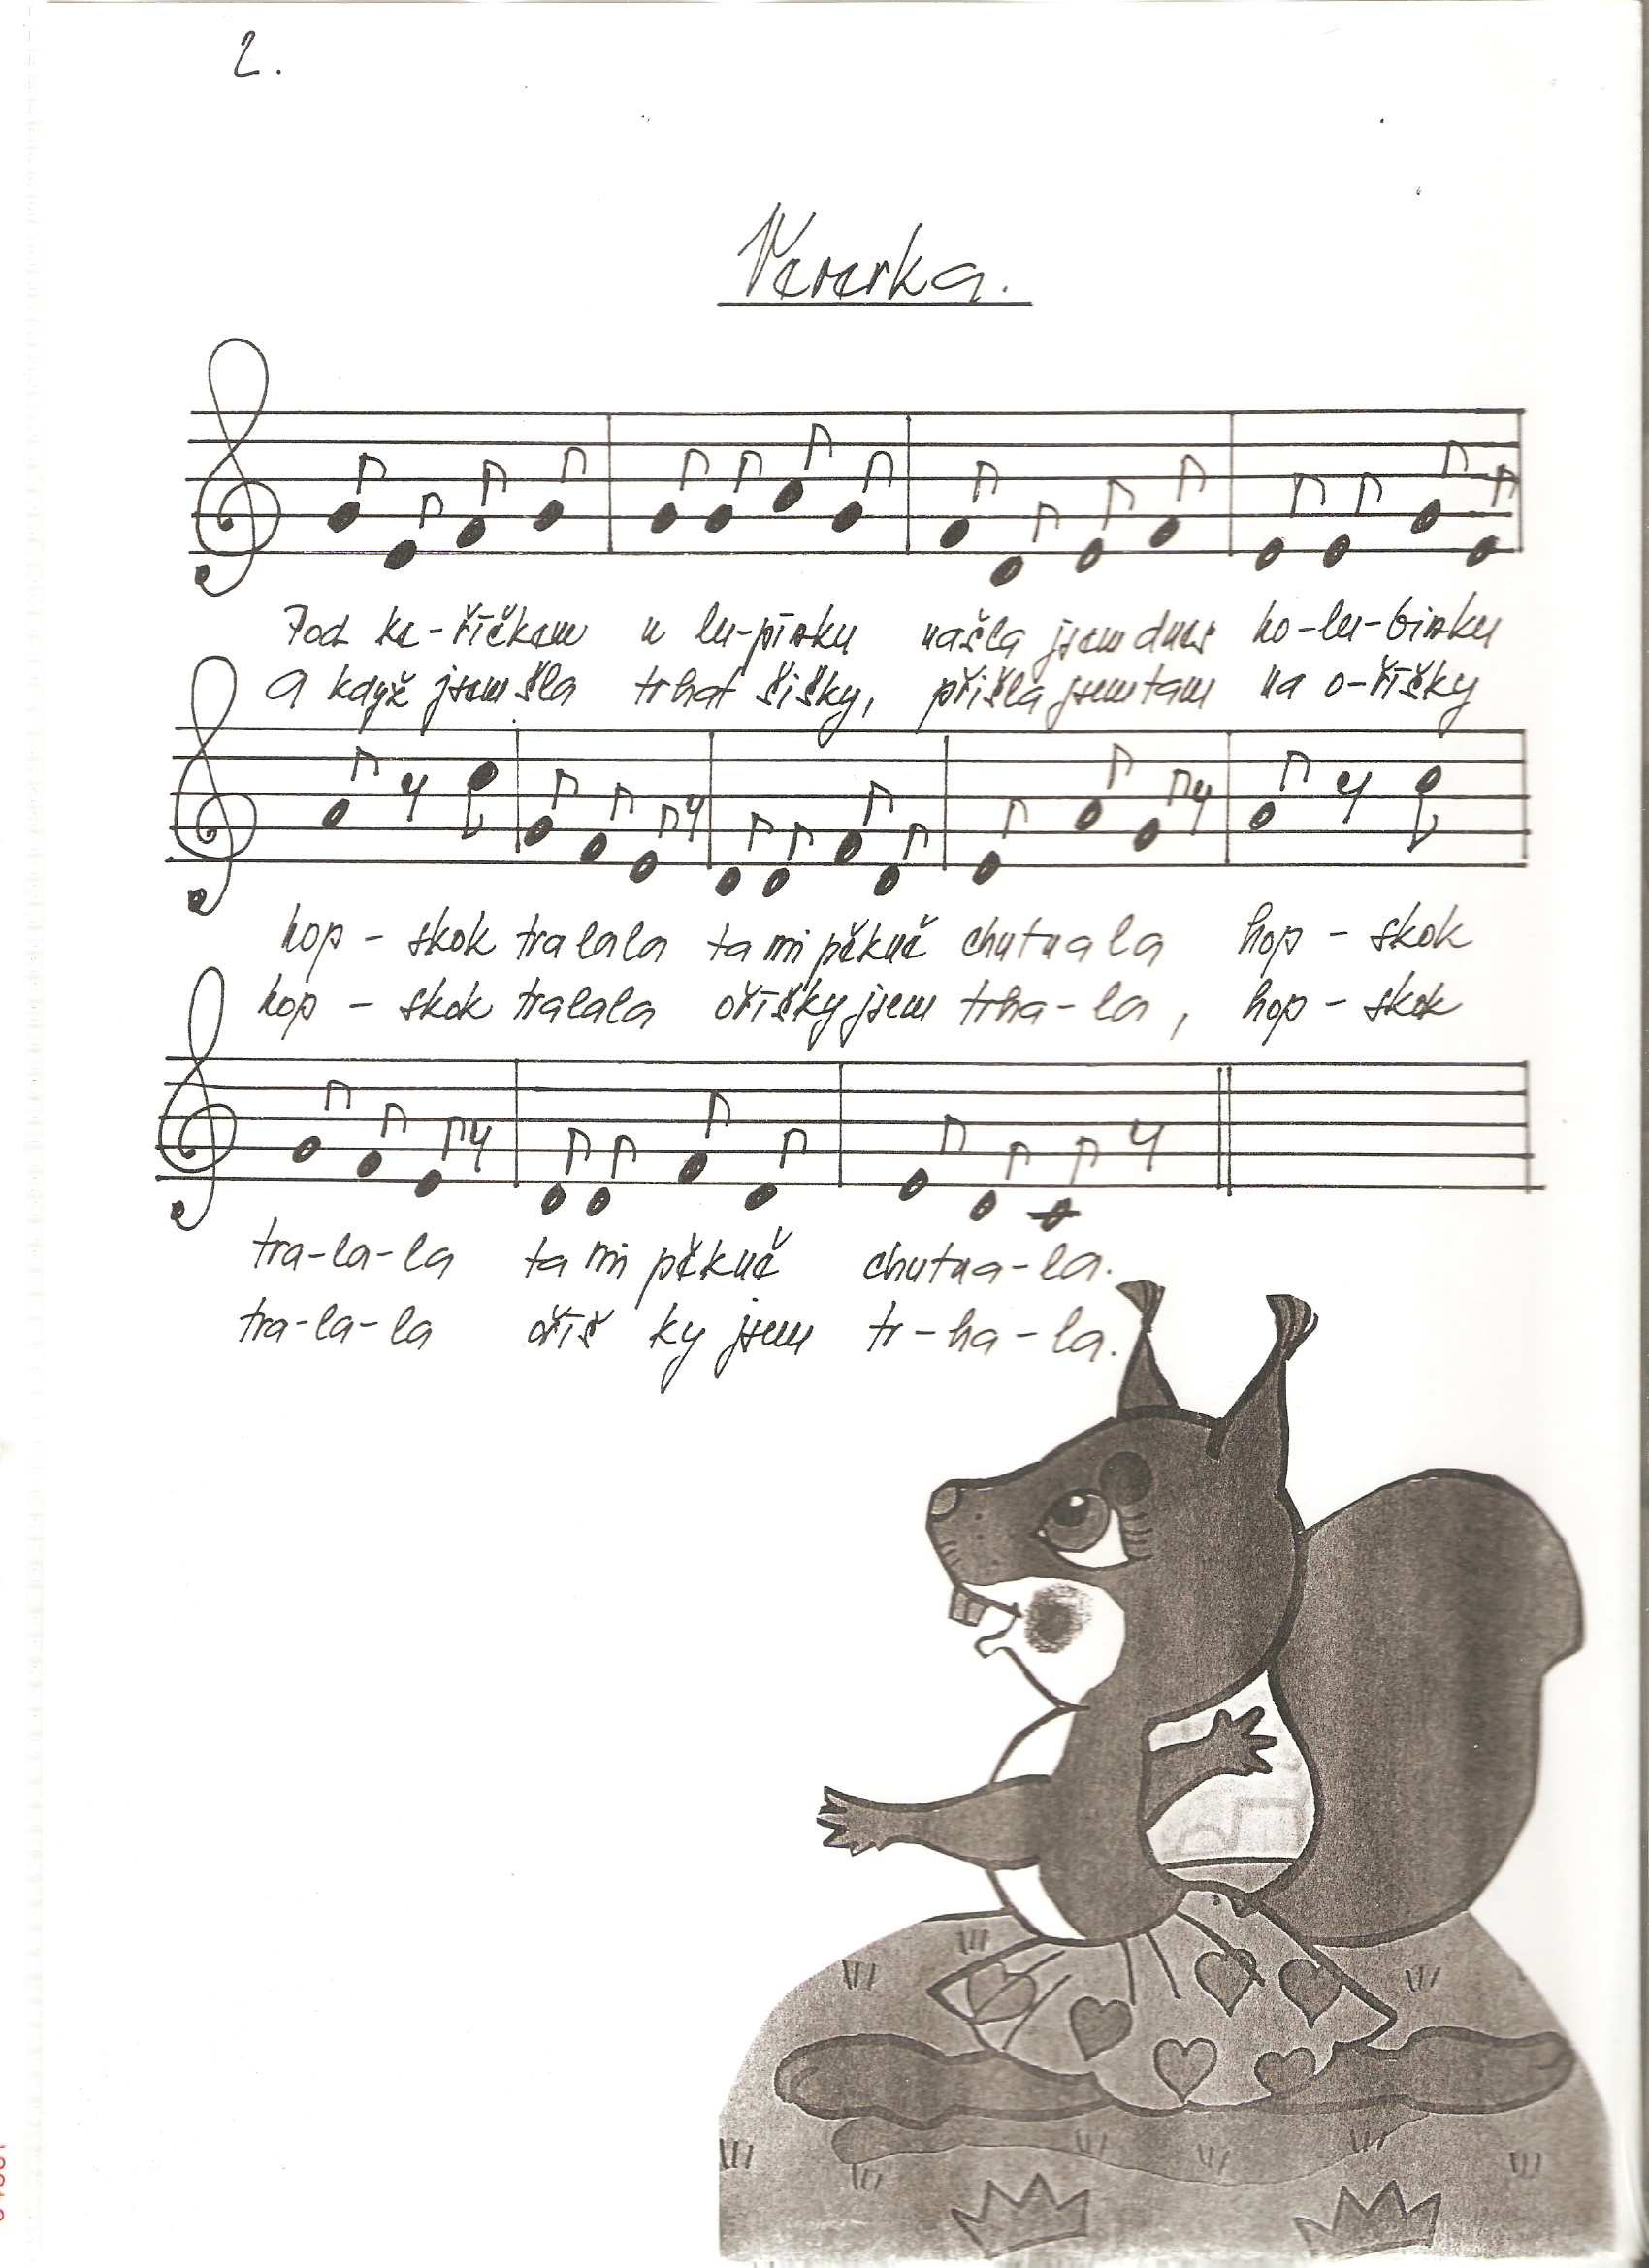 2.
Veverka.
Pod ke-říčkem u lu-pínku našla jsem dnes ho-lu-binku
A když jsem šla trhat šišky, přišla jsem tam na o-říšky
hop - skok tralala ta mi pěkně chutnala hop - skok
hop - skok tralala oříšky jsem trha-la, hop - skok
tra-la-la ta mi pěkně chutna-la.
tra-la-la oříš ky jsem tr-ha-la.